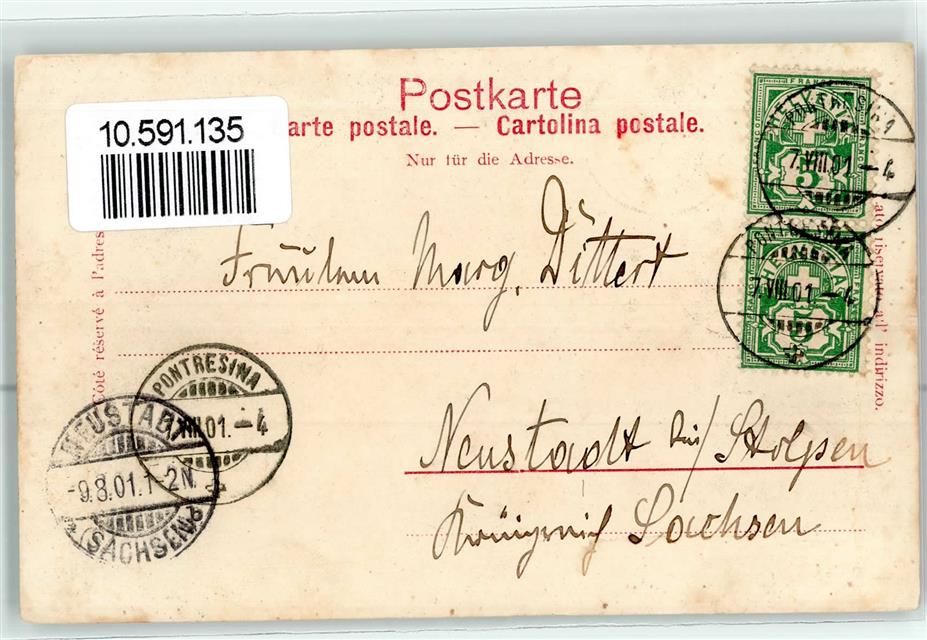 Postkarte
10.591.135
arte postale. — Cartolina postale.
Nur für die Adresse.
Côté réservé à l'adres
ato riservato all' indirizzo.
FRANCO
HELVETIA
5
7.VIII.01–4
FRANCO
HELVETIA
5
PONTRESINA
7.VIII.01–4
Fräulein Marg. Dittert
PONTRESINA
VIII.01.–4
NEUSTADT
-9.8.01.1-2N.
(SACHSEN)
Neustadt bei/Stolpen
Königreich Sachsen